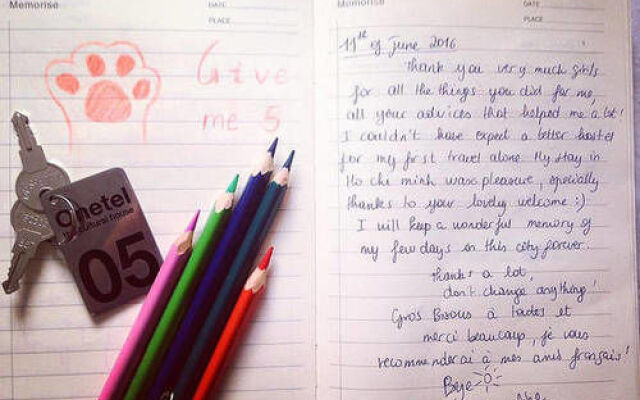 Memorise
DATE
PLACE
Give
me 5
Onetel
cultural house
05
Memorise
DATE
PLACE
11st of June 2016
Thank you very much girls
for all the things you did for me,
all your advices that helped me a lot!
I couldn't have expect a better hostel
for my first travel alone. My stay in
Ho chi minh was pleasure, specially
thanks to your lovely welcome :)
I will keep a wonderful memory of
my few days in this city forever.
thanks a lot,
don't change anything!
Gros Bisous à toutes et
merci beaucoup, je vous
recommenderai à mes amis français!
Bye